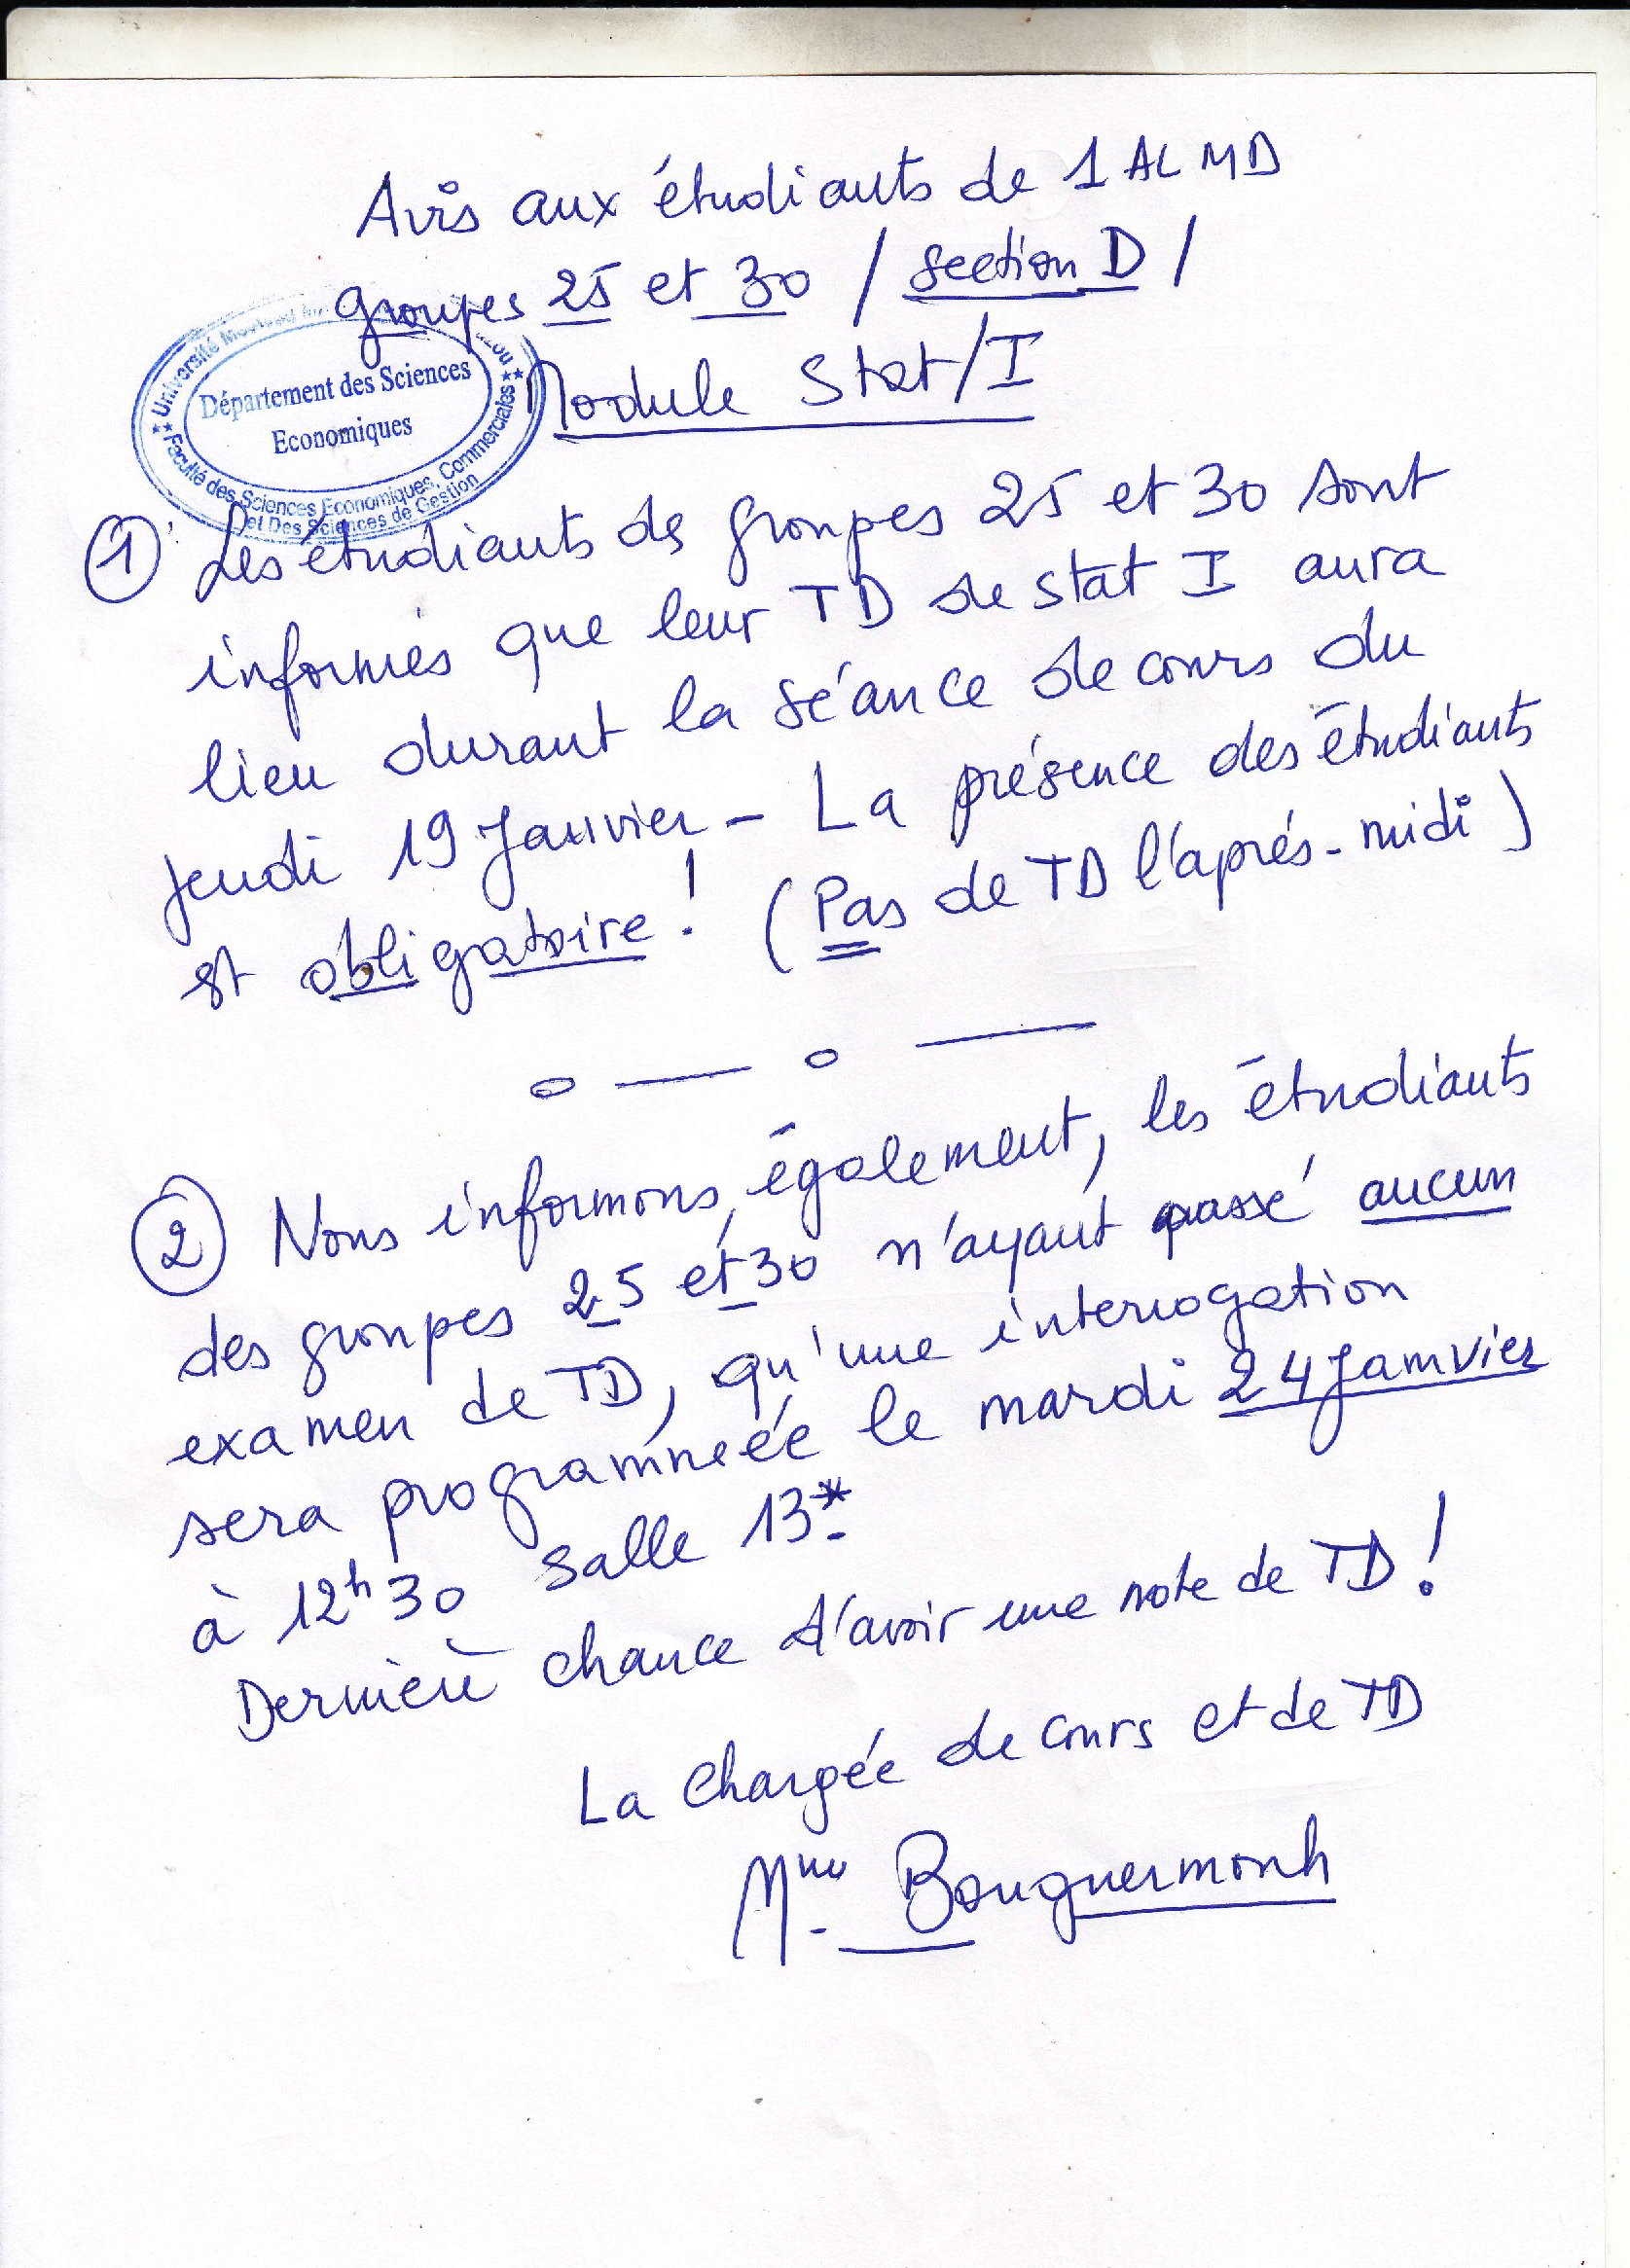 Avis aux étudiants de 1 ALMD
groupes 25 et 30 / section D /
Module Stat/I
** Université
Département des Sciences
Economiques
Faculté des Sciences Economiques, Commerciales **
et Des Sciences de Gestion
① Les étudiants des groupes 25 et 30 sont
informés que leur TD de stat I aura
lieu durant la séance de cours du
jeudi 19 Janvier - La présence des étudiants
est obligatoire ! (Pas de TD l'après-midi)
② Nous informons, également, les étudiants
des groupes 25 et 30 n'ayant passé aucun
examen de TD, qu'une interrogation
sera programmée le mardi 24 Janvier
à 12h30 salle 13*
Dernière chance d'avoir une note de TD !
La Chargée de cours et de TD
Mme Bouguermouh